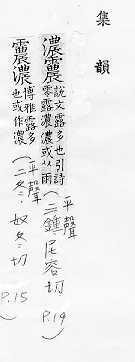 集韻
濃 說文露多也引詩
零露濃濃或从雨
(平聲 三鍾 尼容切 P.19)
濃 博雅露多
也或作濃
(平聲 二冬 奴冬切 P.15)